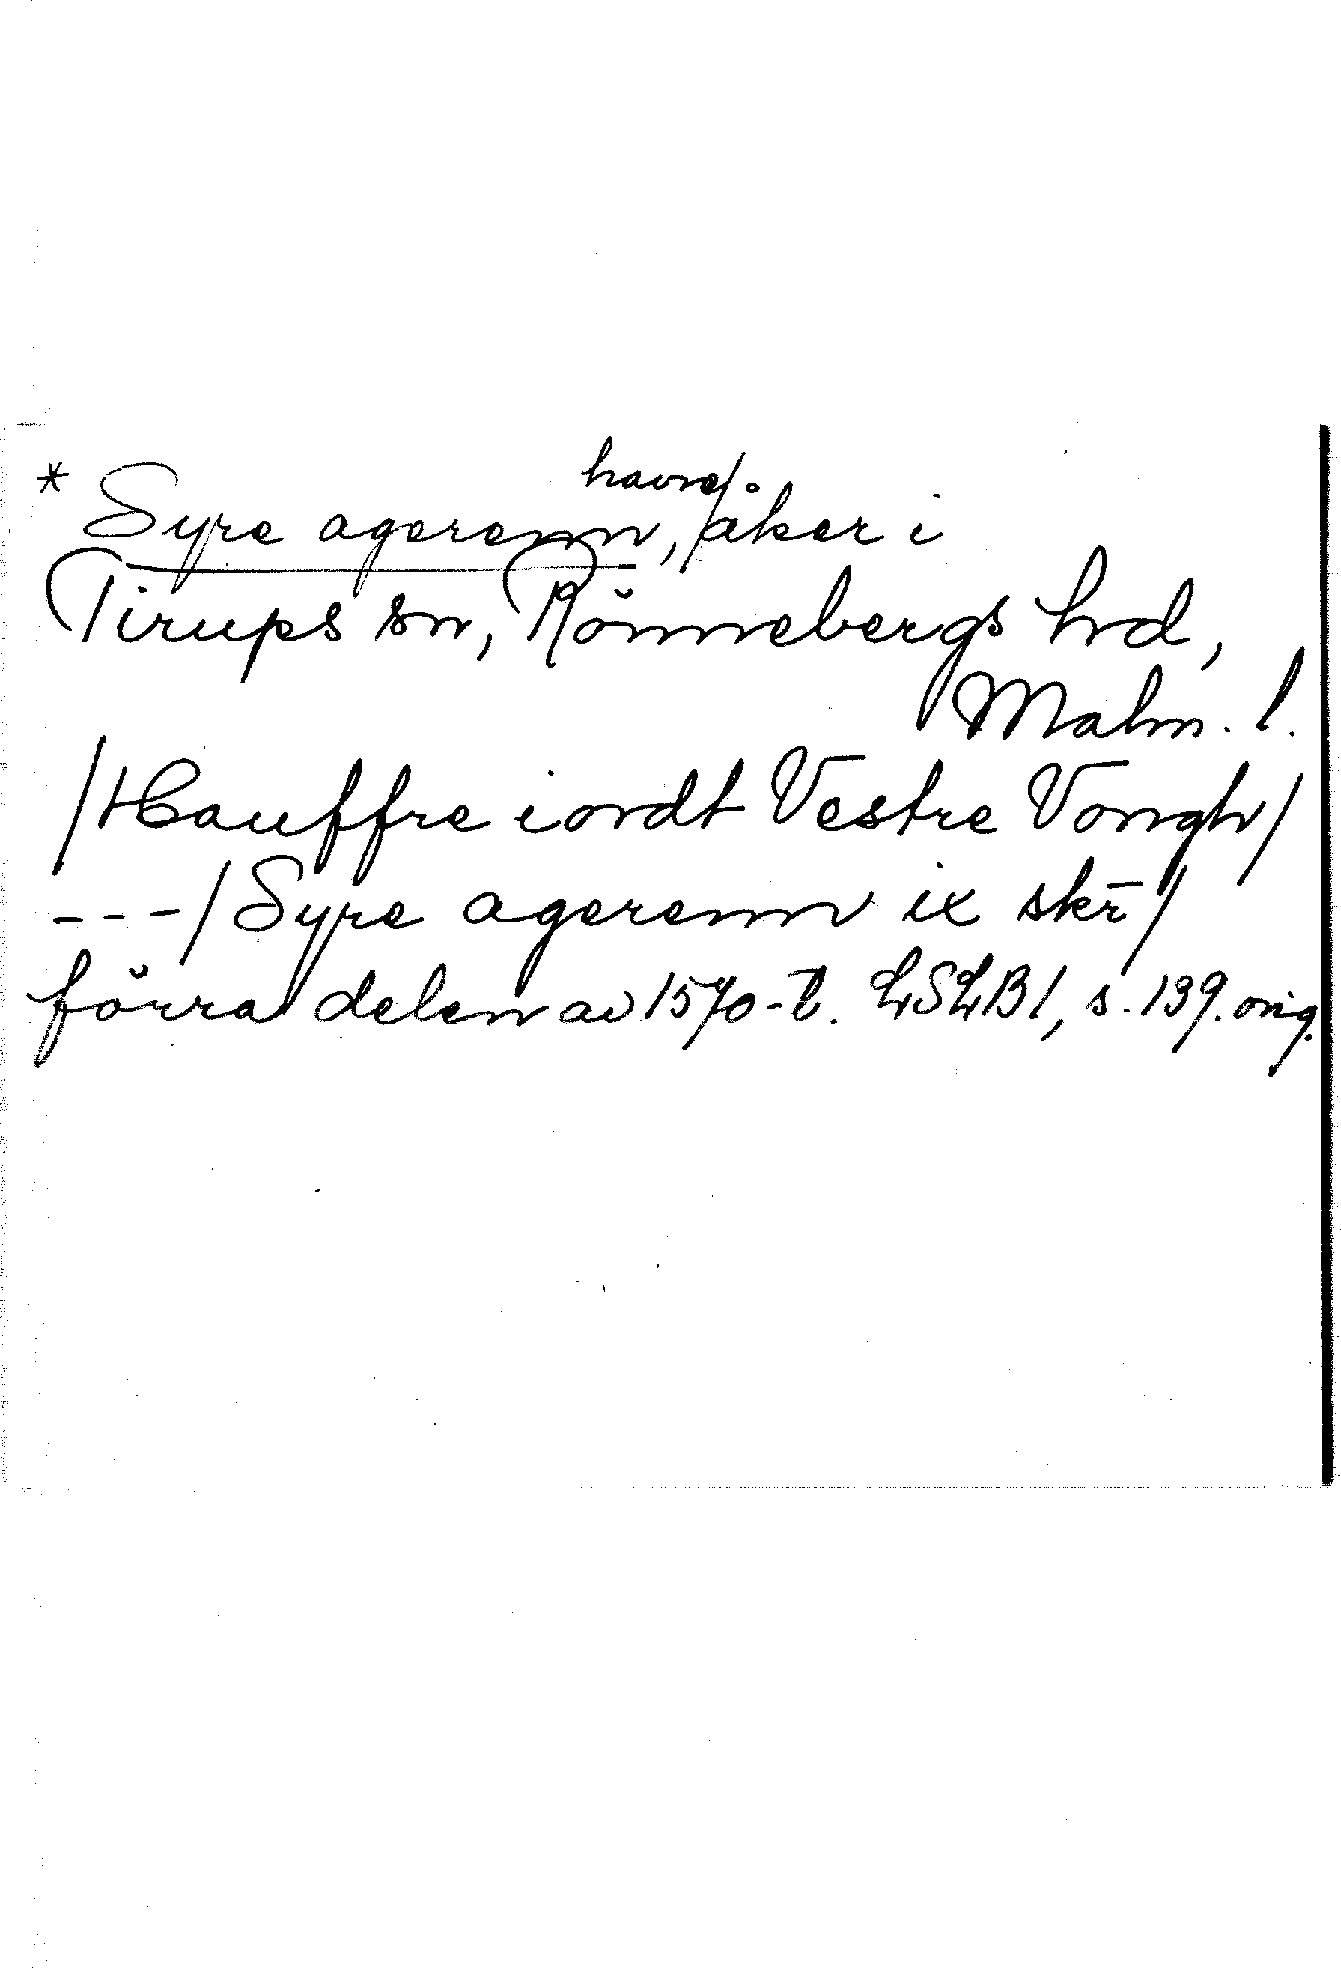 * Syre agerenn, havreåker i
Tirups sn, Rönnebergs hrd,
Malm. l.
/Hauffre iordt Vestre Vongh/
---/Syre agerenn ix skr̄/
förra delen av 1570-t. LSLB1, s. 139. orig.